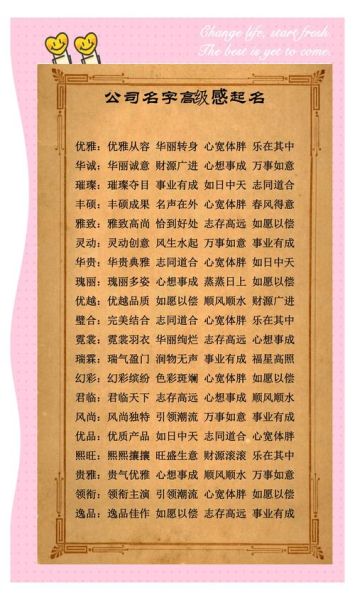 Change life, start fresh.
The best is yet to come.
公司名字高级感起名
优雅：优雅从容 华丽转身 心宽体胖 乐在其中
华诚：华丽诚意 财源广进 心想事成 万事如意
璀璨：璀璨夺目 事业有成 如日中天 志同道合
丰硕：丰硕成果 名声在外 心宽体胖 春风得意
雅致：雅致高尚 恰到好处 志存高远 如愿以偿
灵动：灵动创意 风生水起 万事如意 事业有成
华贵：华贵典雅 志同道合 心宽体胖 如日中天
瑰丽：瑰丽多姿 心想事成 蒸蒸日上 如愿以偿
优越：优越品质 如愿以偿 顺风顺水 财源广进
璧合：完美结合 志同道合 心宽体胖 乐在其中
霓裳：霓裳羽衣 华丽绚烂 志存高远 心想事成
瑞霖：瑞气盈门 润物无声 事业有成 福星高照
幻彩：幻彩缤纷 色彩斑斓 心宽体胖 如愿以偿
君临：君临天下 志存高远 心想事成 顺风顺水
风尚：风尚独特 引领潮流 万事如意 事业有成
优品：优质产品 如日中天 志同道合 心宽体胖
熙旺：熙熙攘攘 旺盛生意 财源滚滚 乐在其中
贵雅：贵气优雅 心想事成 顺风顺水 万事如意
领衔：领衔主演 引领潮流 心宽体胖 如愿以偿
逸品：逸品佳作 如愿以偿 志存高远 事业有成